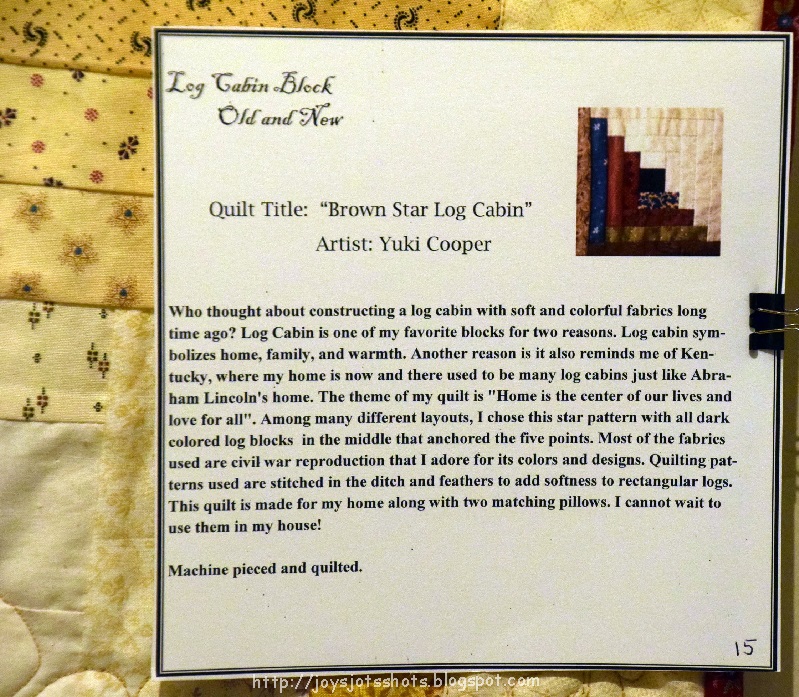 Log Cabin Block
Old and New
Quilt Title:  "Brown Star Log Cabin"
Artist: Yuki Cooper
Who thought about constructing a log cabin with soft and colorful fabrics long
time ago? Log Cabin is one of my favorite blocks for two reasons. Log cabin sym-
bolizes home, family, and warmth. Another reason is it also reminds me of Ken-
tucky, where my home is now and there used to be many log cabins just like Abra-
ham Lincoln's home. The theme of my quilt is "Home is the center of our lives and
love for all". Among many different layouts, I chose this star pattern with all dark
colored log blocks  in the middle that anchored the five points. Most of the fabrics
used are civil war reproduction that I adore for its colors and designs. Quilting pat-
terns used are stitched in the ditch and feathers to add softness to rectangular logs.
This quilt is made for my home along with two matching pillows. I cannot wait to
use them in my house!
Machine pieced and quilted.
15
http://joysjotsshots.blogspot.com